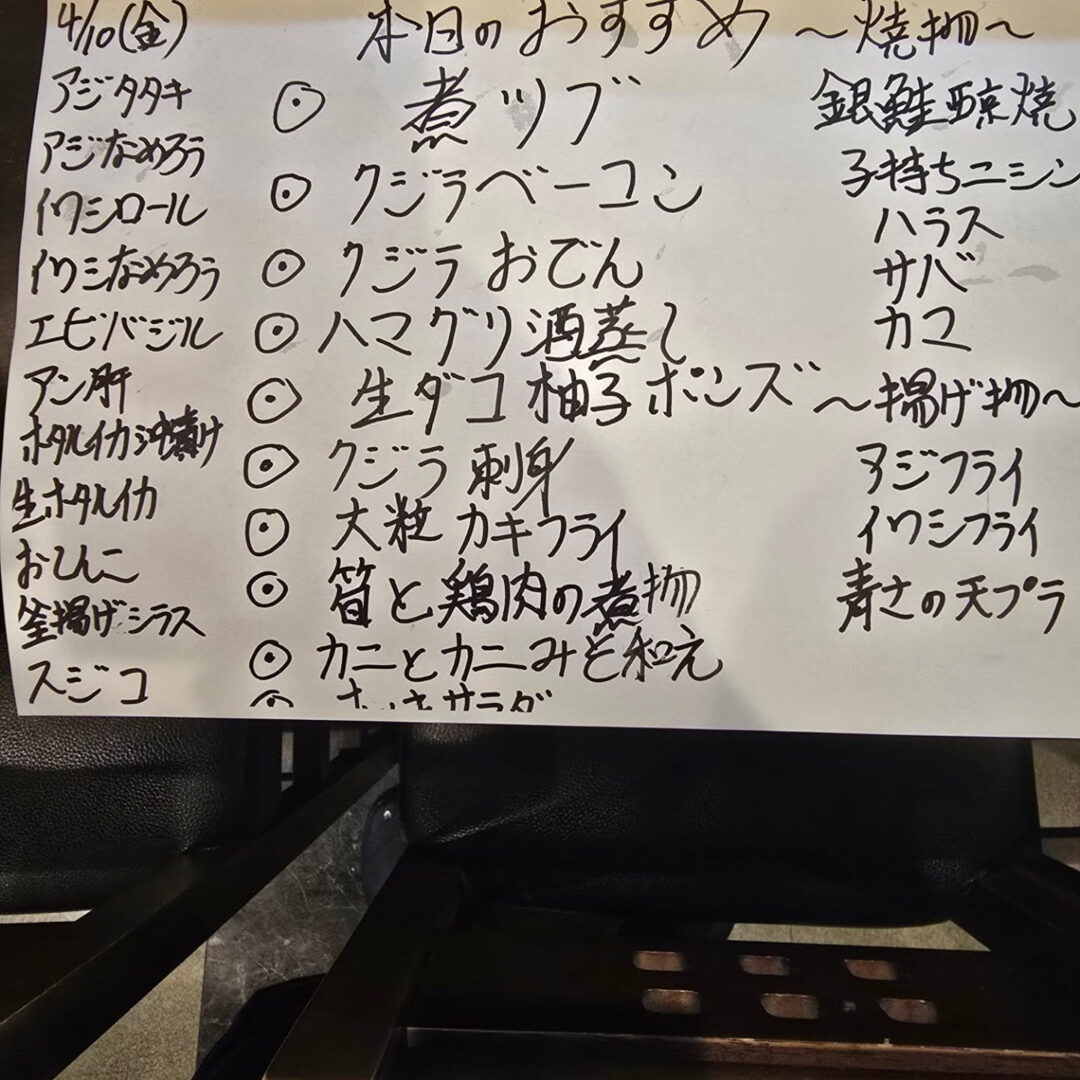 4/10(金)
アジタタキ
アジなめろう
イワシロール
イワシなめろう
エビバジル
アン肝
ホタルイカ沖漬け
生ホタルイカ
おしんこ
釜揚げシラス
スジコ
本日のおすすめ
◉ 煮ツブ
◉ クジラベーコン
◉ クジラおでん
◉ ハマグリ酒蒸し
◉ 生ダコ柚子ポンズ
◉ クジラ刺身
◉ 大粒カキフライ
◉ 筍と鶏肉の煮物
◉ カニとカニみそ和え
サラダ
〜焼物〜
銀鮭粕焼
子持ちニシン
ハラス
サバ
カマ
〜揚げ物〜
アジフライ
イワシフライ
青さの天プラ